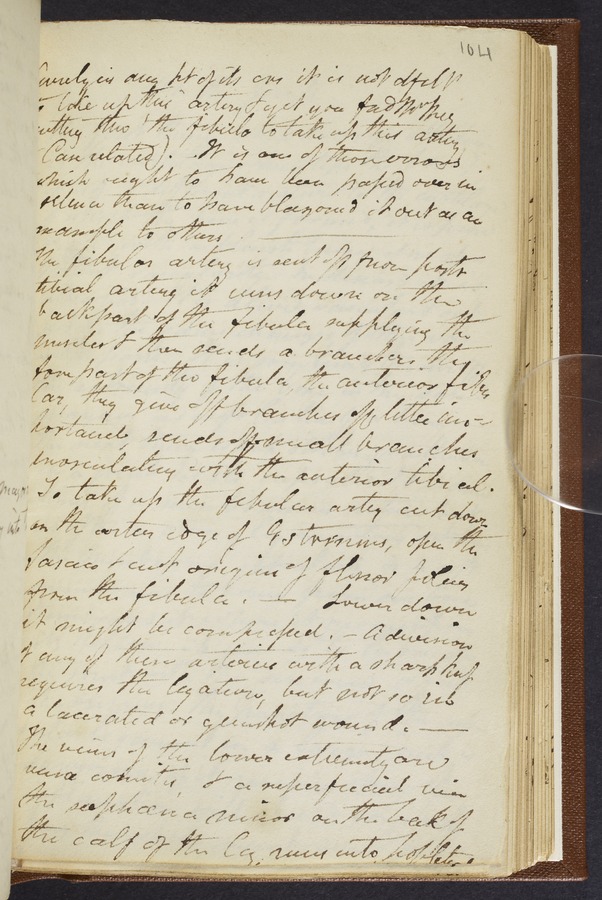 104
in any pt of its cors it is not dfclt
take up this artery & yet you find
cutting thro' the fibula to take up this artery
(Case related). It is one of those errors
which ought to have been passed over in
silence than to have blazoned it out as an
example to others.
The fibular artery is sent off from postr
tibial artery it runs down on the
back part of the fibula supplying the
muscles & then sends a branches thro
fore part of the fibula, the anterior fibu
lar, they give off branches of little im-
portance sends off small branches
inosculating with the anterior tibial.
To take up the fibular artery cut down
on the outer edge of Gstrocnms, open the
fascia & cut origin of flexor pollicis
from the fibula. — Lower down
it might be compressed. — A division
of any of these arteries with a sharp
requires the ligature, but not so in
a lacerated or gunshot wound. —
The veins of the lower extremity are
vena comits, & a superficial vein
the saphæna minor on the back of
the calf of the leg, runs into popliteal